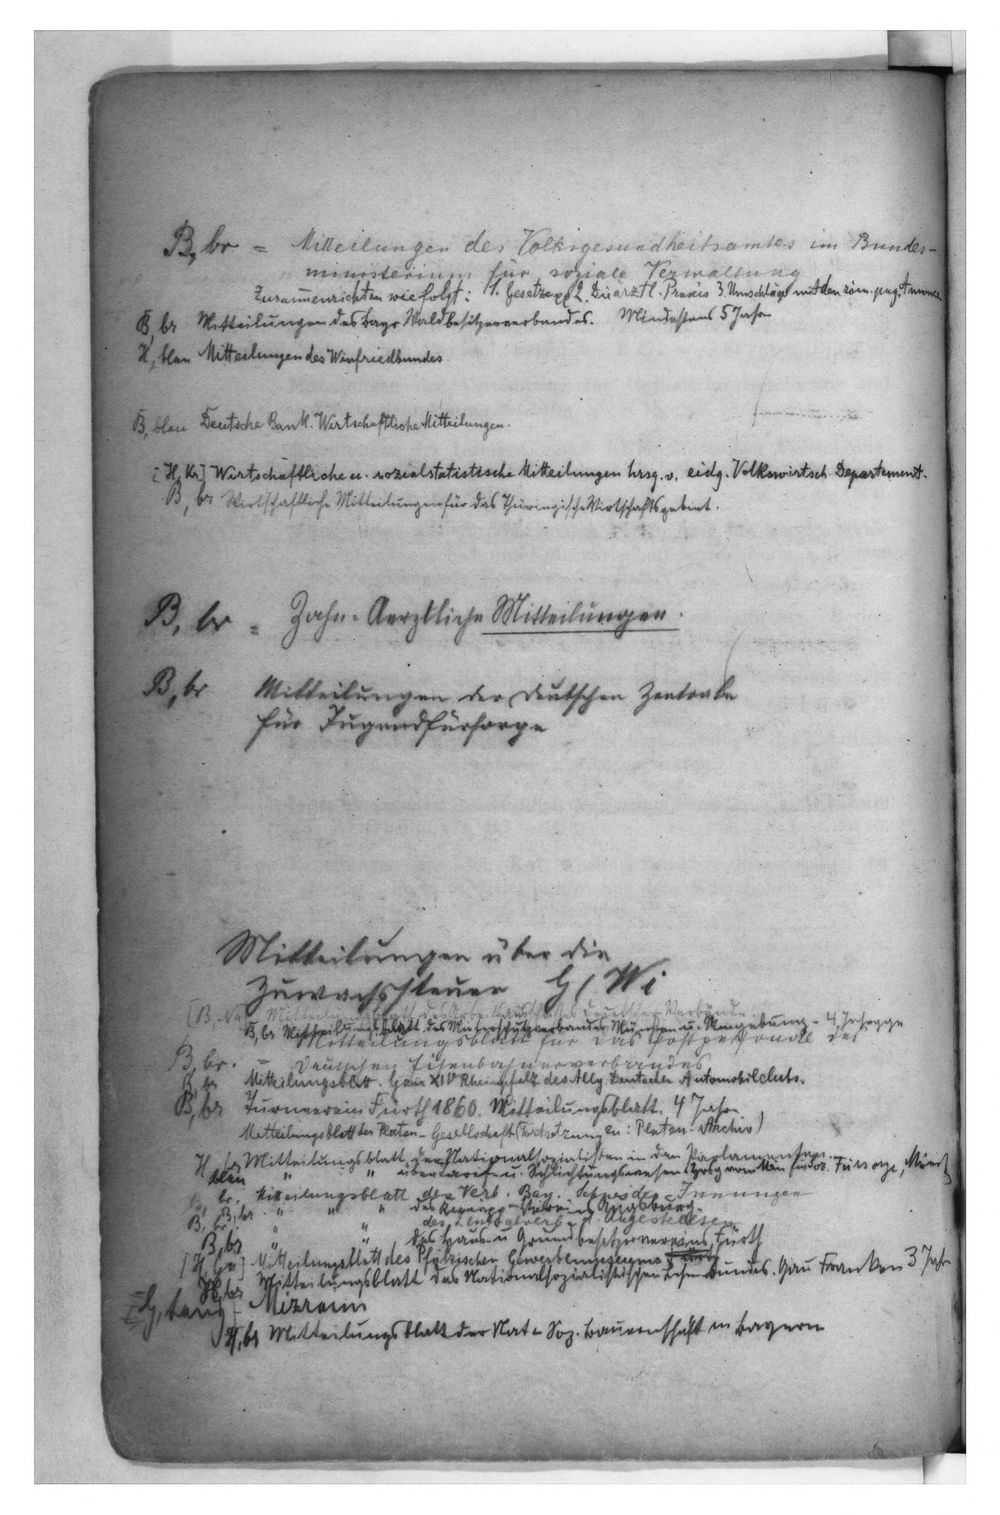 B, br = Mitteilungen des Volksgesundheitsamtes im Bundes-
ministerium für soziale Verwaltung
Zusammenrichten wie folgt: 1. Gesetze 2. Die ärztl. Praxis 3. Umschläge mit den röm. pag.
B, br Mitteilungen des bayr Waldbesitzerverbandes. Mindestens 5 Jahr
H, blau Mitteilungen des Winfriedbundes.
B, blau Deutsche Bank. Wirtschaftliche Mitteilungen.
[H, Kr] Wirtschaftliche u. sozialstatistische Mitteilungen hrsg. v. eidg. Volkswirtsch. Departement.
B, br Wirtschaftliche Mitteilungen für das Thüringische Wirtschaftsgebiet.
B, br = Zahn-Aerztliche Mitteilungen.
B, br Mitteilungen der deutschen Zentrale
für Jugendfürsorge
Mitteilungen über die
Zuwachssteuer G/Wi
Mitteilungsblatt des deutschen
B, br Mitteilungsblatt des Mieterschutzverbandes München u. Umgebung - 4 Jahrgge
Mitteilungsblatt für das Postpersonal des
B, br. = Deutschen Eisenbahnerverbandes
B, br Mitteilungsblatt. Gau XIV Rheinpfalz des Allg. Deutschen Automobilclubs.
B, br Turnverein Fürth 1860. Mitteilungsblatt. 4 Jahre
Mitteilungsblatt der Platen-Gesellschaft (Fortsetzungen: Platen-Archiv)
H, br Mitteilungsblatt der Nationalsozialisten in den Parlamenten
blau " " über Tarif- u. Schlichtungswesen
B, br. Mitteilungsblatt des Verb. Bay. Innungen
B, br " " des Kneipp-Vereins Augsburg.
B, br. " " des Zentralverb. d. Angestellten
B, br " " des Haus- u. Grundbesitzervereins Fürth
[H, br] Mitteilungsblatt des Pfälzischen
H, br Mitteilungsblatt des Nationalsozialistischen Lehrerbundes. Gau Franken 3 Jahr
Mizraim
H, br Mitteilungsblatt der Nat-Soz. Bauernschaft in Bayern